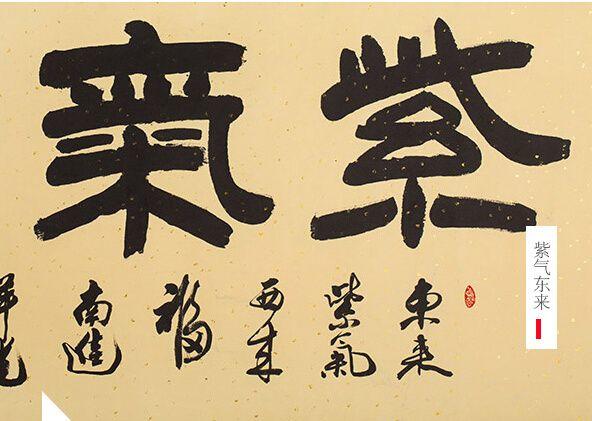 紫氣
東来
紫氣
西来
福
南進
紫气东来